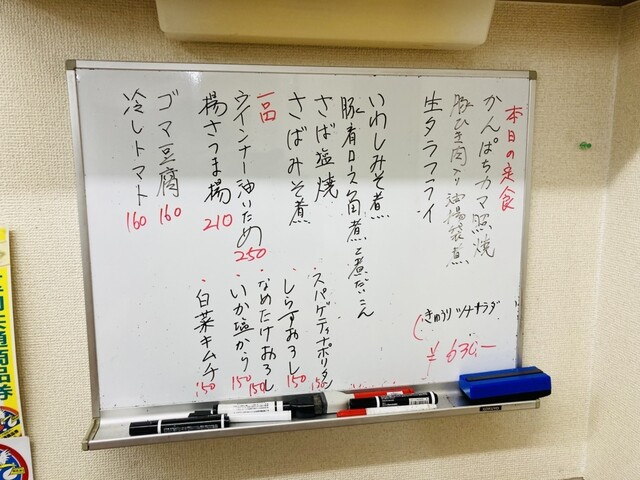 本日の定食
かんぱちカマ照焼
豚ひき肉入り油揚袋煮
生タラフライ
(きゅうりツナサラダ
¥630-
いわしみそ煮
豚肩ロース角煮と煮だいこん
さば塩焼
さばみそ煮
一品
ウインナー油いため 250
揚さつま揚 210
ゴマ豆腐 160
冷しトマト 160
・スパゲティナポリタン 150
・しらすおろし 150
・なめたけおろし 150
・いか塩から 150
・白菜キムチ 150
共通商品券